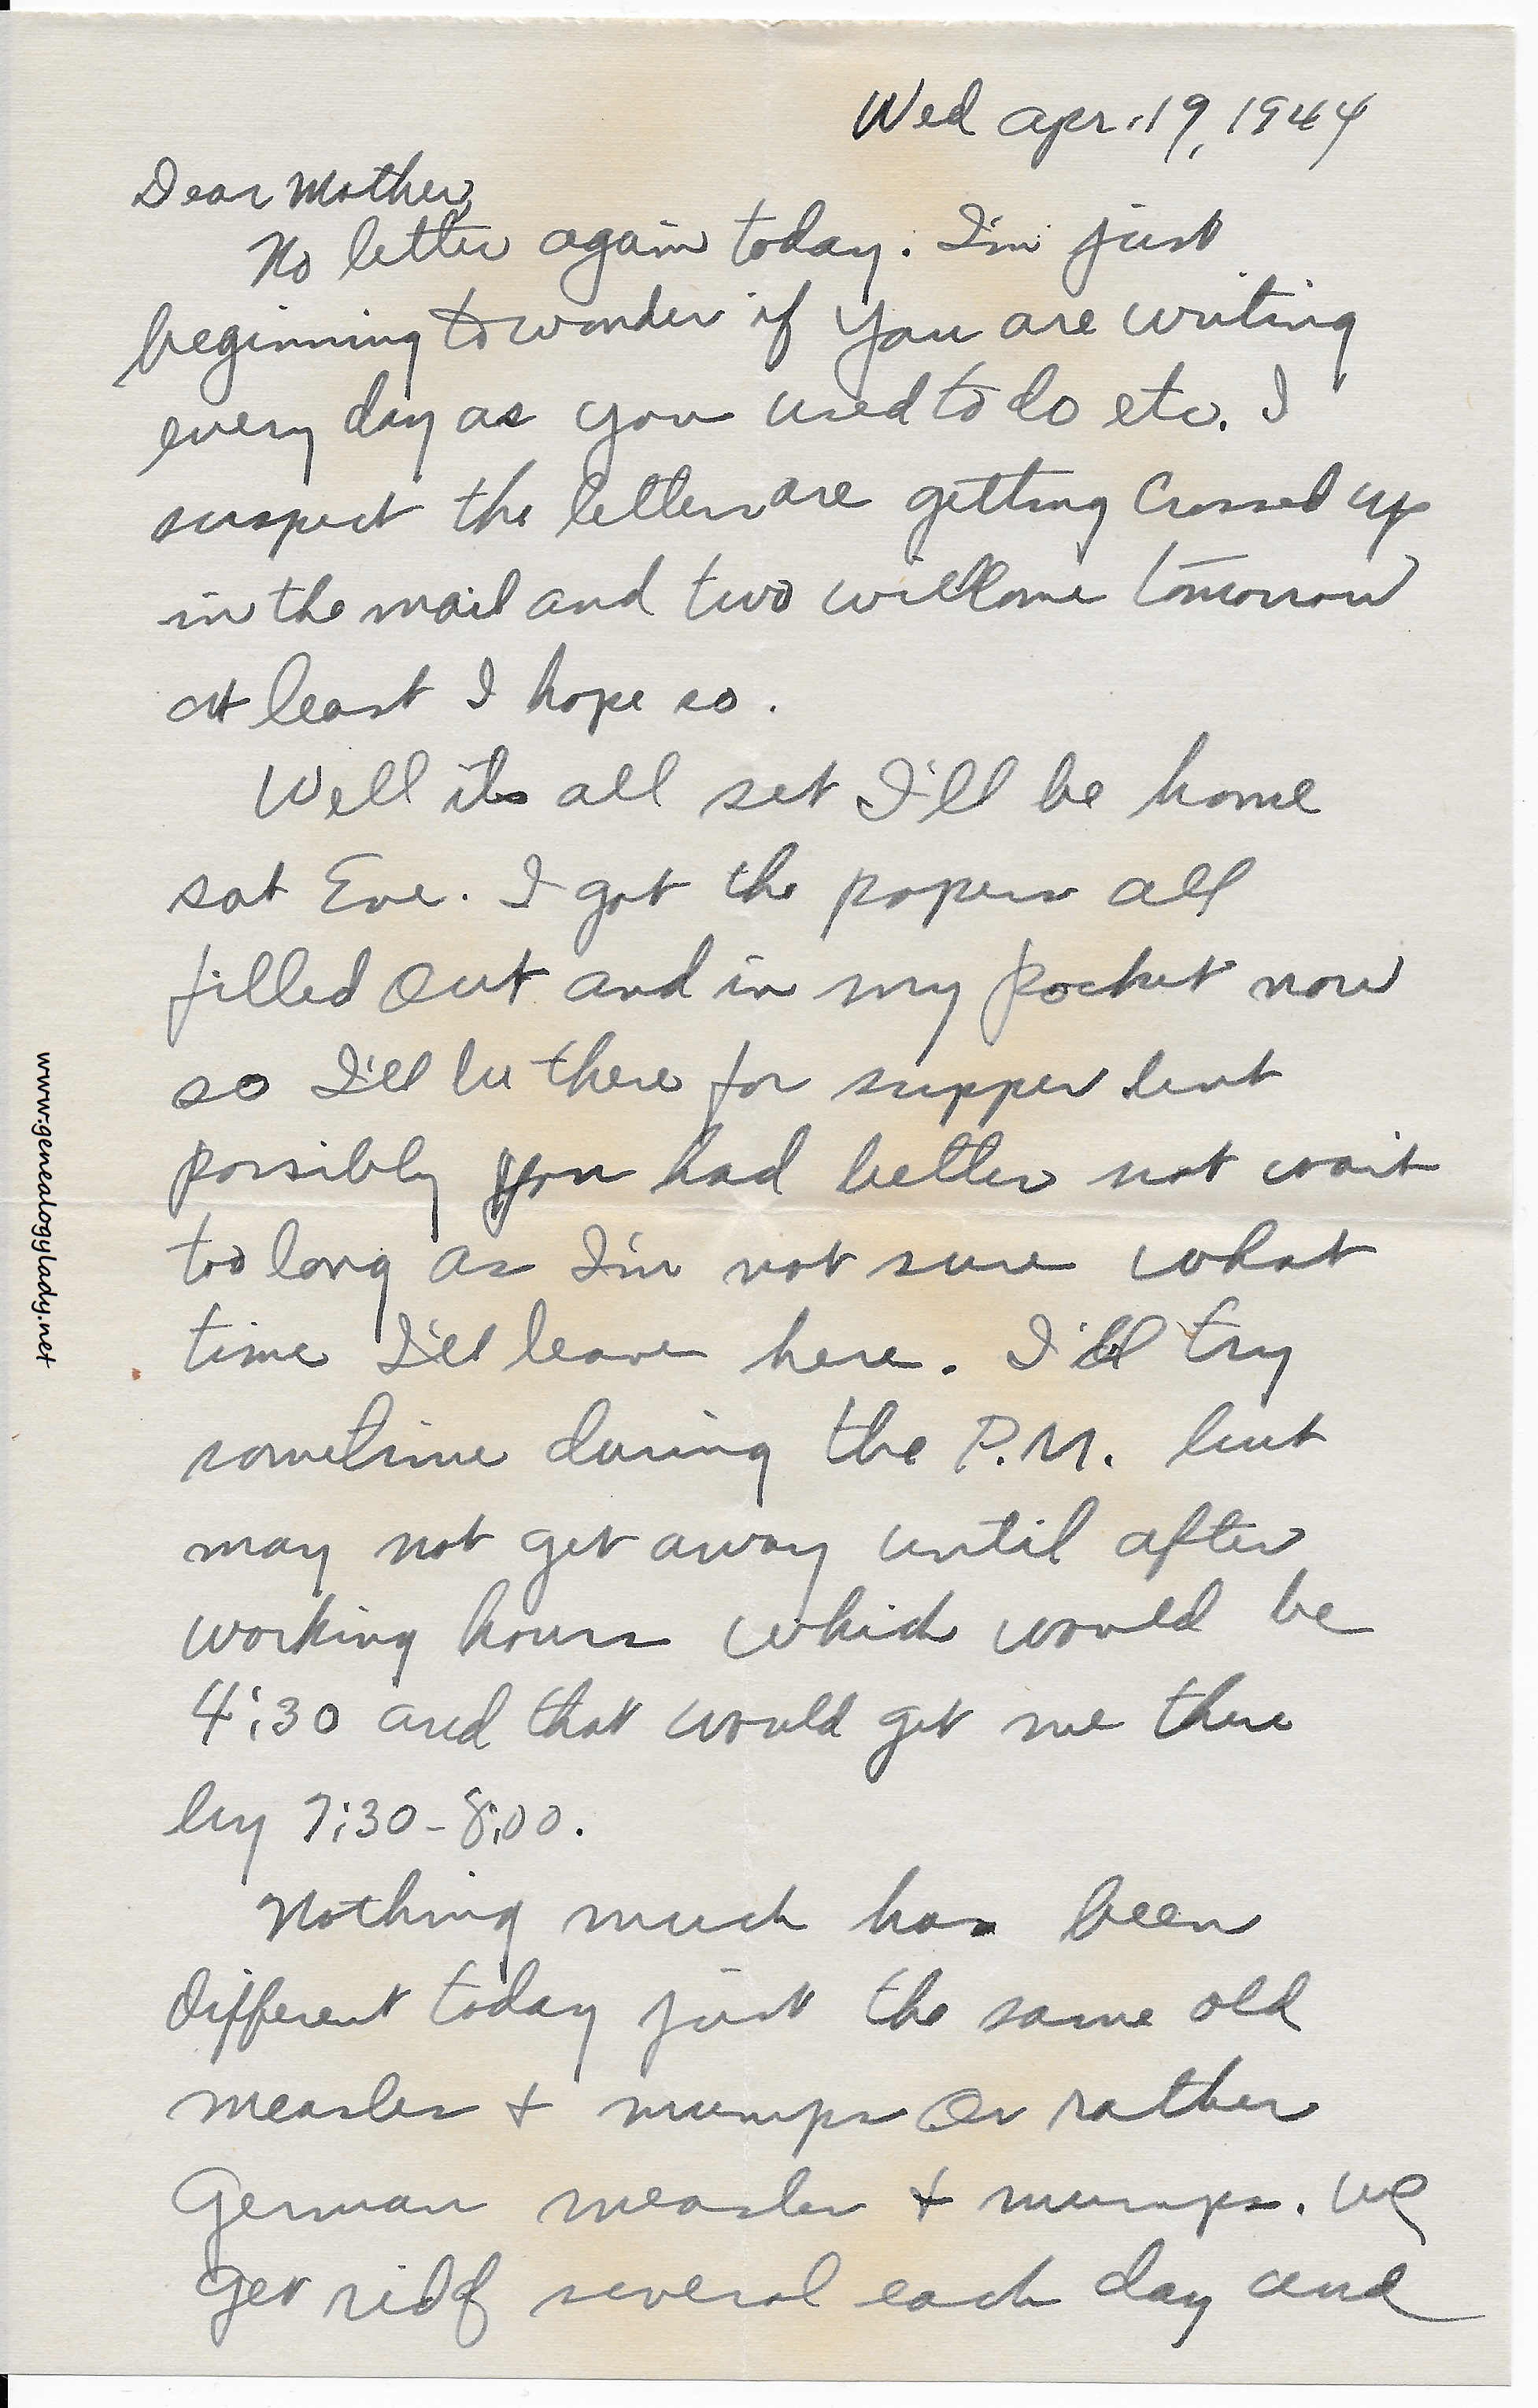 Wed Apr. 19, 1944
Dear Mother,
No letter again today. I'm just
beginning to wonder if you are writing
every day as you used to do etc. I
suspect the letters are getting crossed up
in the mail and two will come tomorrow
at least I hope so.
Well its all set I'll be home
Sat Eve. I got the papers all
filled out and in my pocket now
so I'll be there for supper but
possibly you had better not wait
too long as I'm not sure what
time I'll leave here. I'll try
sometime during the P.M. but
may not get away until after
working hours which would be
4:30 and that would get me there
by 7:30-8:00.
Nothing much has been
different today just the same old
measles + mumps or rather
German measles + mumps. We
get rid of several each day and
www.genealogylady.net